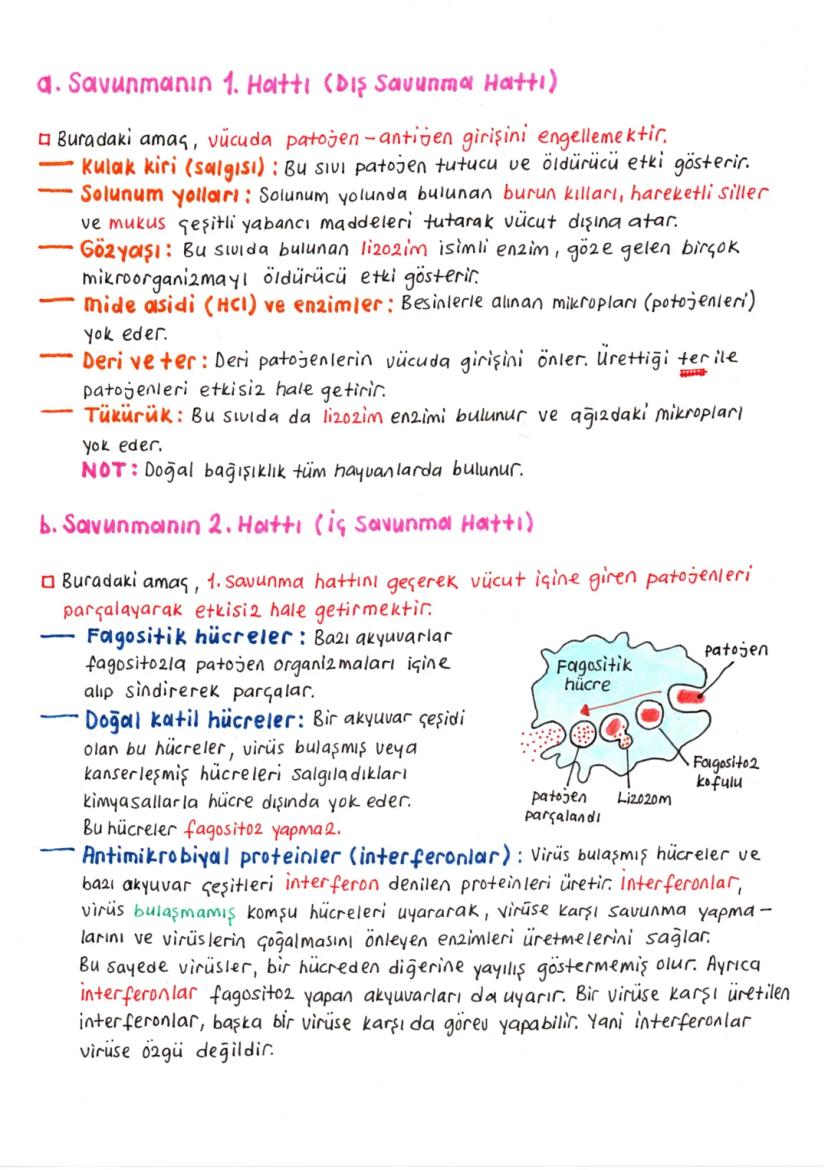 a. Savunmanın 1. Hattı (Dış Savunma Hattı)
Buradaki amaç, vücuda patojen-antijen girişini engellemektir.
— Kulak kiri (salgısı) : Bu sıvı patojen tutucu ve öldürücü etki gösterir.
— Solunum yolları : Solunum yolunda bulunan burun kılları, hareketli siller
ve mukus çeşitli yabancı maddeleri tutarak vücut dışına atar.
— Gözyaşı : Bu sıvıda bulunan lizozim isimli enzim, göze gelen birçok
mikroorganizmayı öldürücü etki gösterir.
— Mide asidi (HCl) ve enzimler : Besinlerle alınan mikropları (potojenleri)
yok eder.
— Deri ve ter : Deri patojenlerin vücuda girişini önler. Ürettiği ter ile
patojenleri etkisiz hale getirir.
— Tükürük : Bu sıvıda da lizozim enzimi bulunur ve ağızdaki mikropları
yok eder.
NOT : Doğal bağışıklık tüm hayvanlarda bulunur.
b. Savunmanın 2. Hattı (iç Savunma Hattı)
Buradaki amaç, 1. savunma hattını geçerek vücut içine giren patojenleri
parçalayarak etkisiz hale getirmektir.
— Fagositik hücreler : Bazı akyuvarlar
fagositozla patojen organizmaları içine
alıp sindirerek parçalar.
— Doğal katil hücreler : Bir akyuvar çeşidi
olan bu hücreler, virüs bulaşmış veya
kanserleşmiş hücreleri salgıladıkları
kimyasallarla hücre dışında yok eder.
Bu hücreler fagositoz yapmaz.
Fagositik
hücre
patojen
Fagositoz
kofulu
Lizozom
patojen
parçalandı
— Antimikrobiyal proteinler (interferonlar) : Virüs bulaşmış hücreler ve
bazı akyuvar çeşitleri interferon denilen proteinleri üretir. İnterferonlar,
virüs bulaşmamış komşu hücreleri uyararak, virüse karşı savunma yapma-
larını ve virüslerin çoğalmasını önleyen enzimleri üretmelerini sağlar.
Bu sayede virüsler, bir hücreden diğerine yayılış göstermemiş olur. Ayrıca
interferonlar fagositoz yapan akyuvarları da uyarır. Bir virüse karşı üretilen
interferonlar, başka bir virüse karşı da görev yapabilir. Yani interferonlar
virüse özgü değildir.